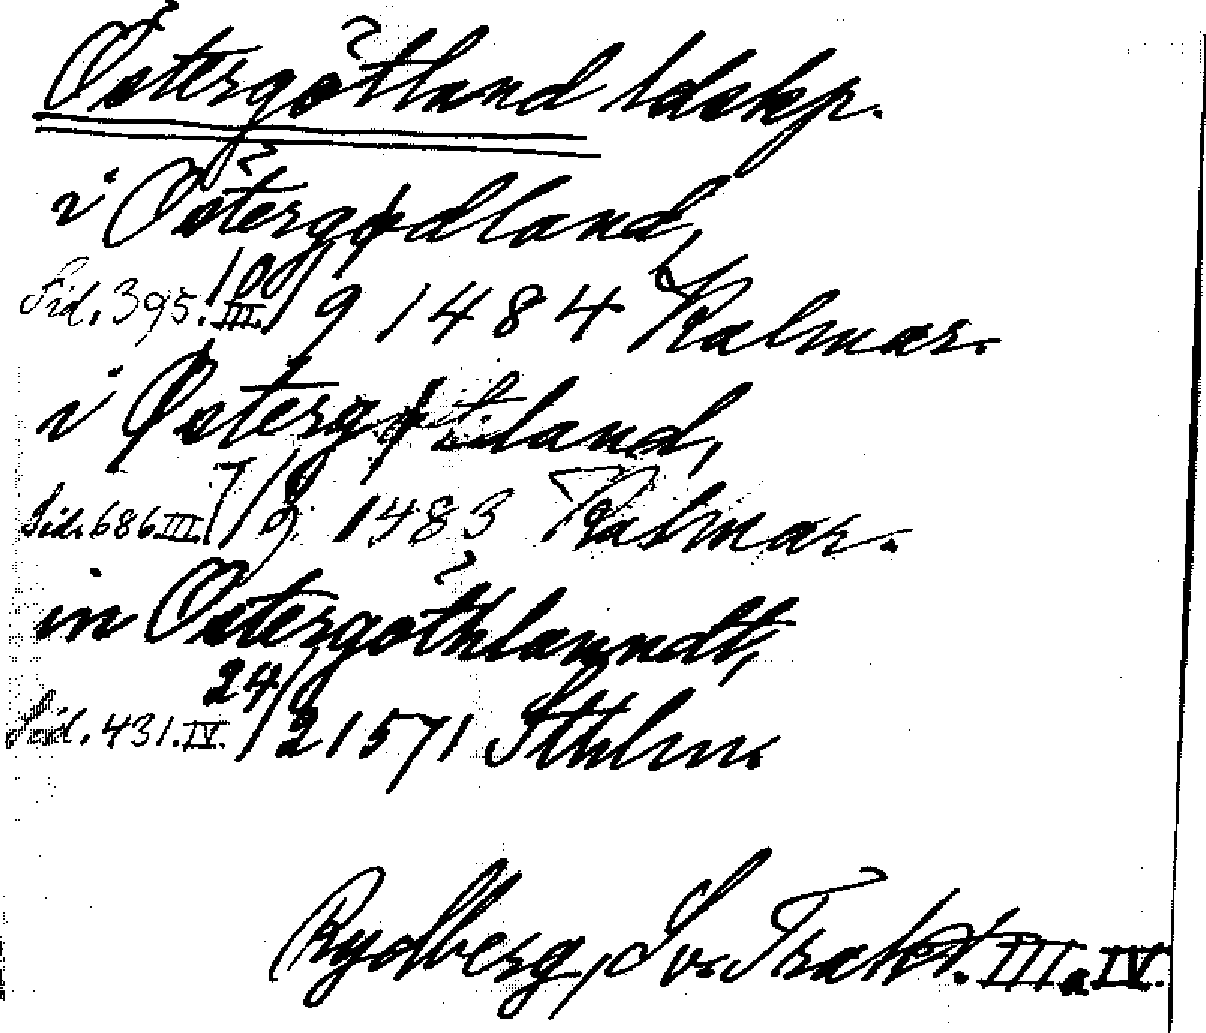 Östergötland ldskp.
i Østergødland,
Sid. 395. III. 10/9 1484 Kalmar.
i Østergøtland,
Sid. 686 III. 7/9 1483 Kalmar.
in Ostergöthlanndt,
Sid. 431. IV. 24/2 1571 Sthlm.
Rydberg, Sv. Trakt. III a IV.